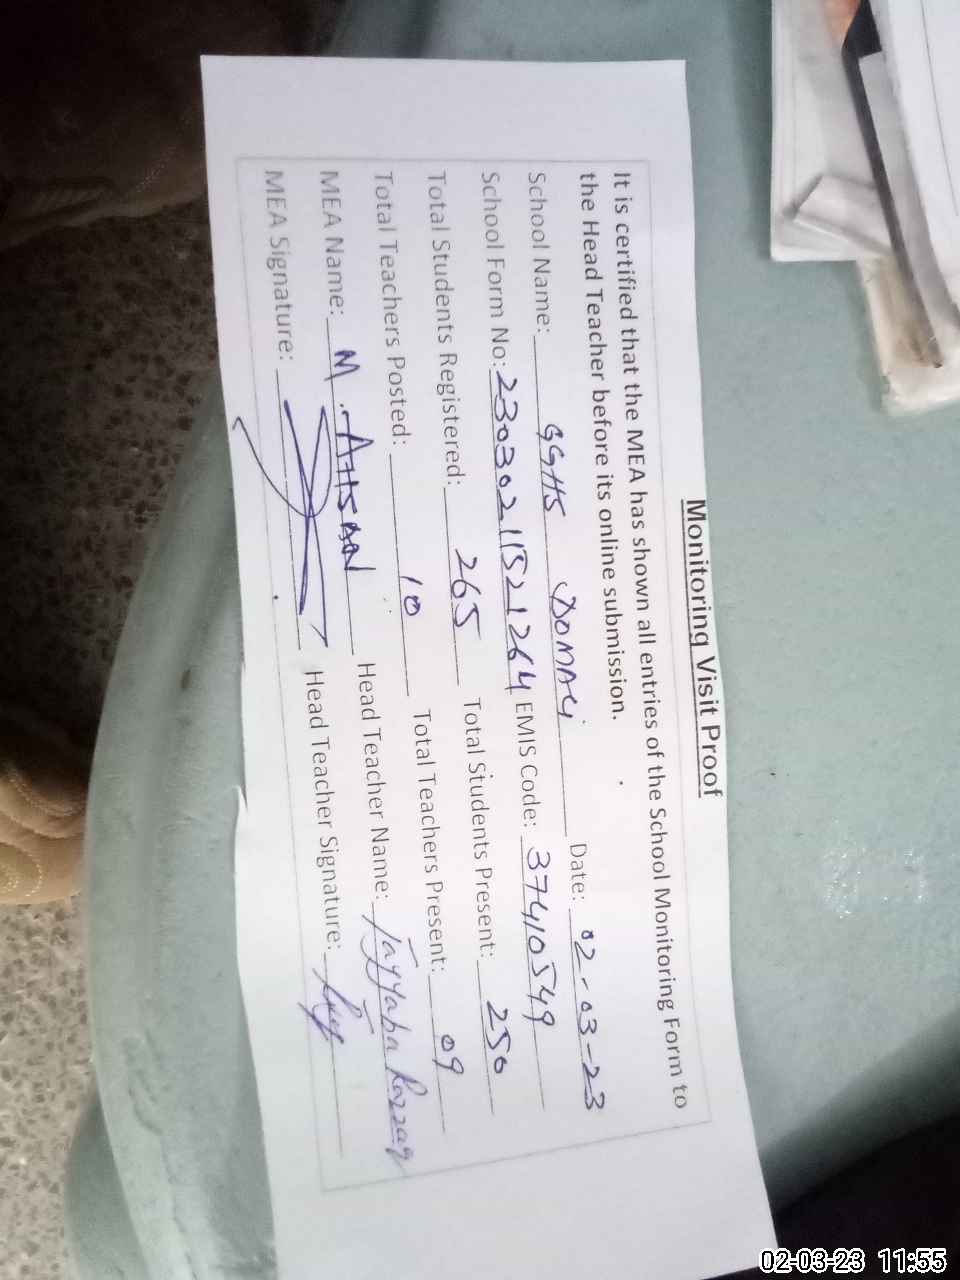 Monitoring Visit Proof
It is certified that the MEA has shown all entries of the School Monitoring Form to
the Head Teacher before its online submission.
School Name: GGHS DOMALI Date: 02-03-23
School Form No: 23030211521264 EMIS Code: 37410549
Total Students Registered: 265 Total Students Present: 250
Total Teachers Posted: 10 Total Teachers Present: 09
MEA Name: M. AHSAN Head Teacher Name: Tayyaba Razzaq
MEA Signature: Head Teacher Signature:
02-03-23 11:55